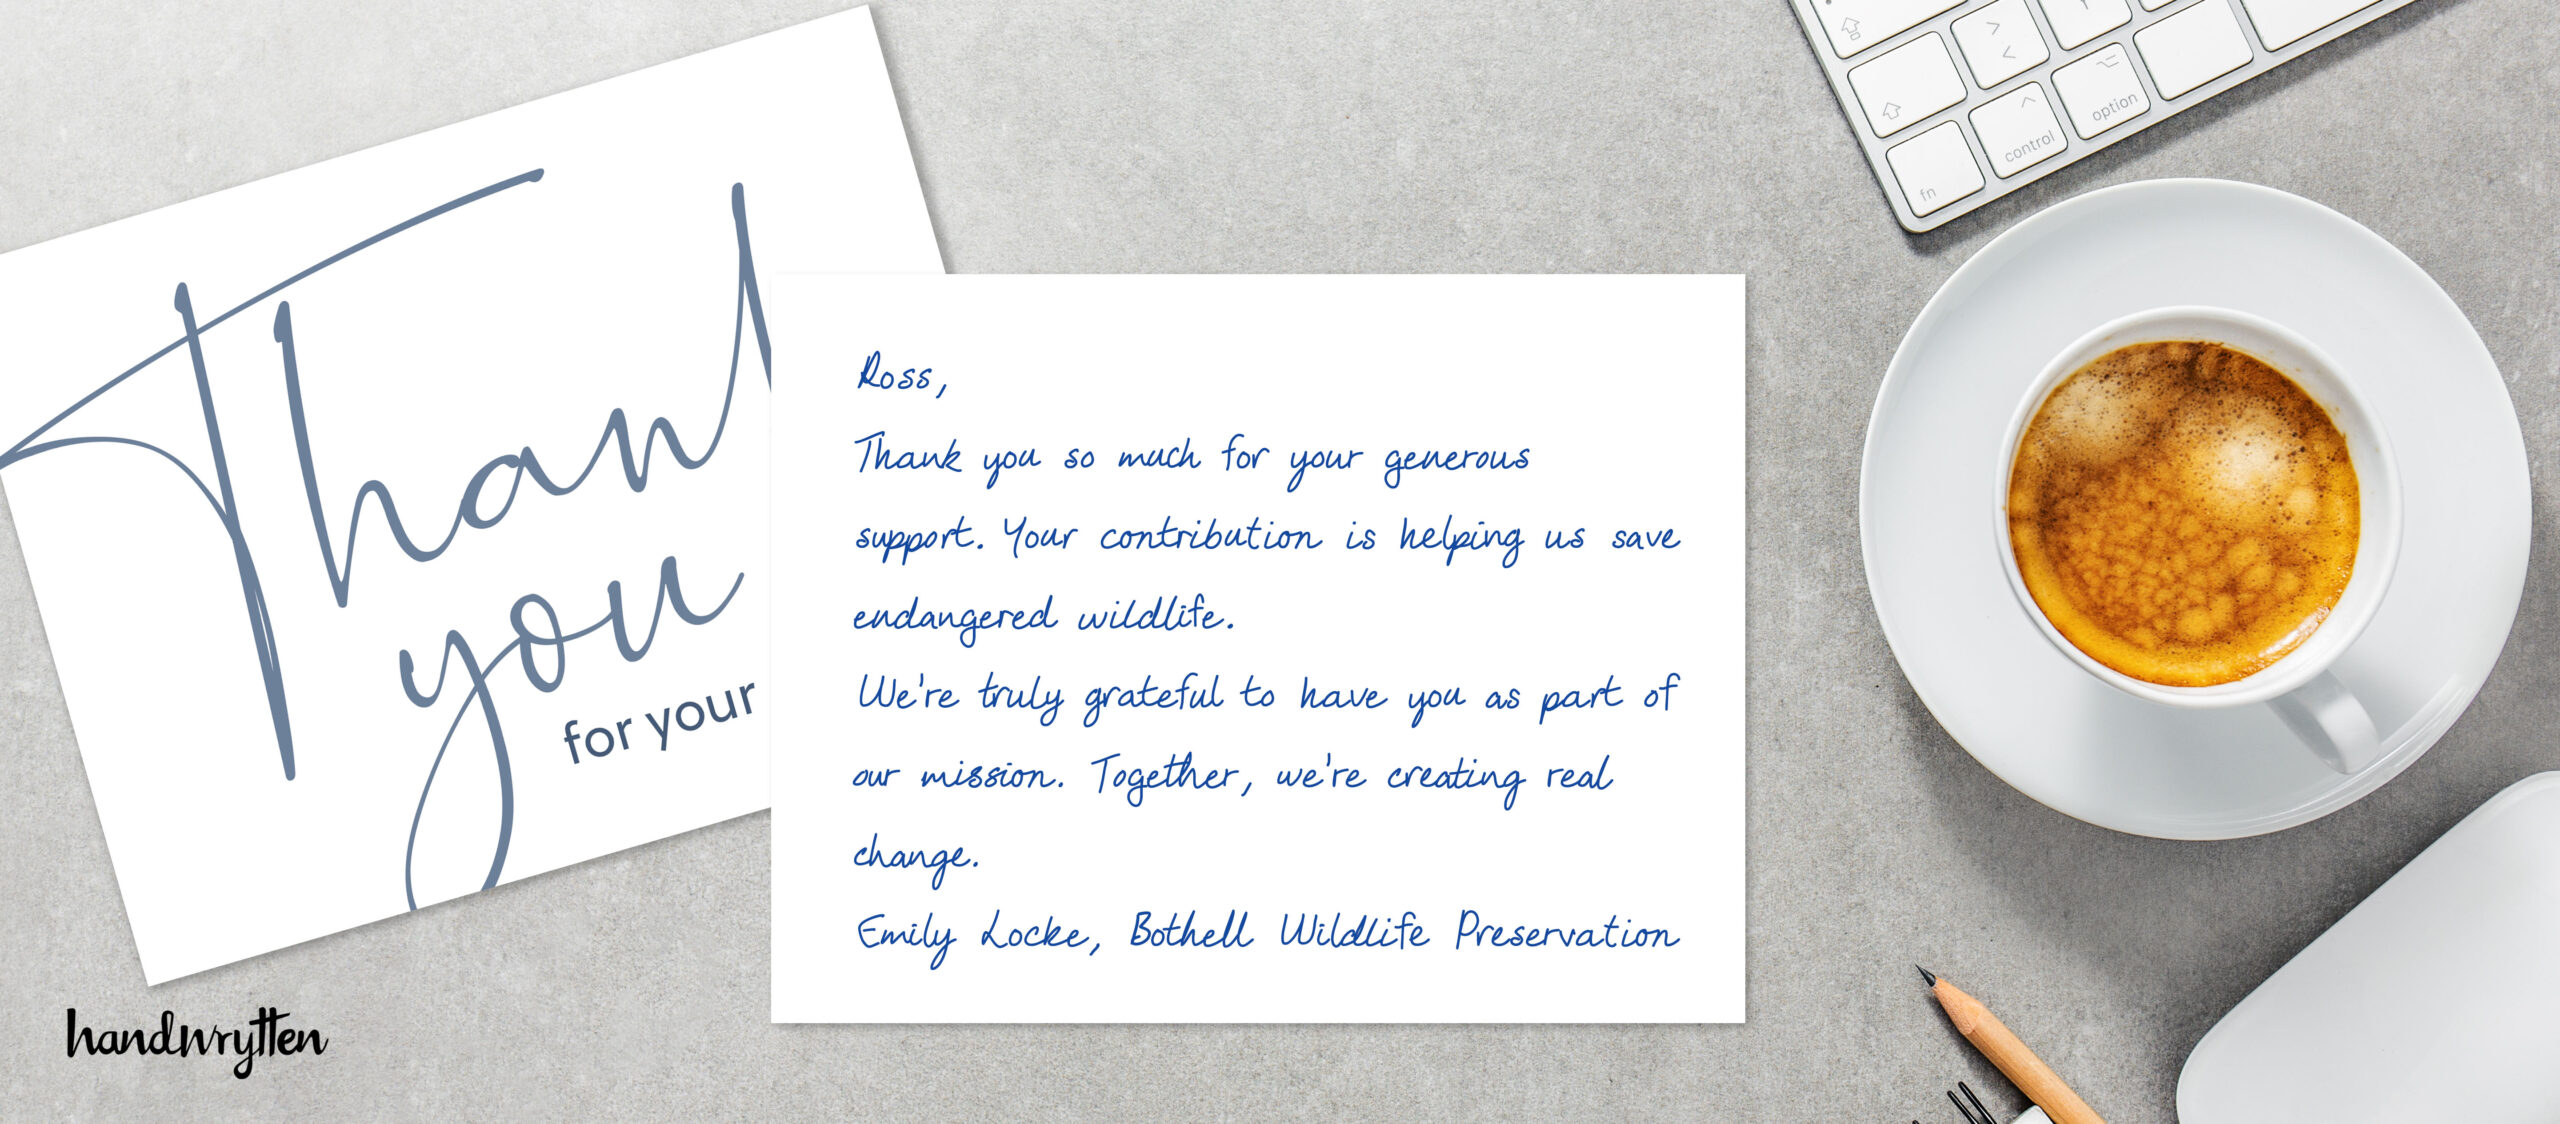 Thank
you
for your
Ross,
Thank you so much for your generous
support. Your contribution is helping us save
endangered wildlife.
We're truly grateful to have you as part of
our mission. Together, we're creating real
change.
Emily Locke, Bothell Wildlife Preservation
handwrytten
option
control
fn